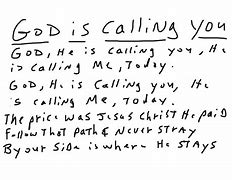 GOD is calling you
GOD, He is calling you, He
is calling Me, Today.
GOD, He is calling you, He
is calling Me, Today.
The price was Jesus Christ He paid
Follow That path & Never stray
By your side is where He stays